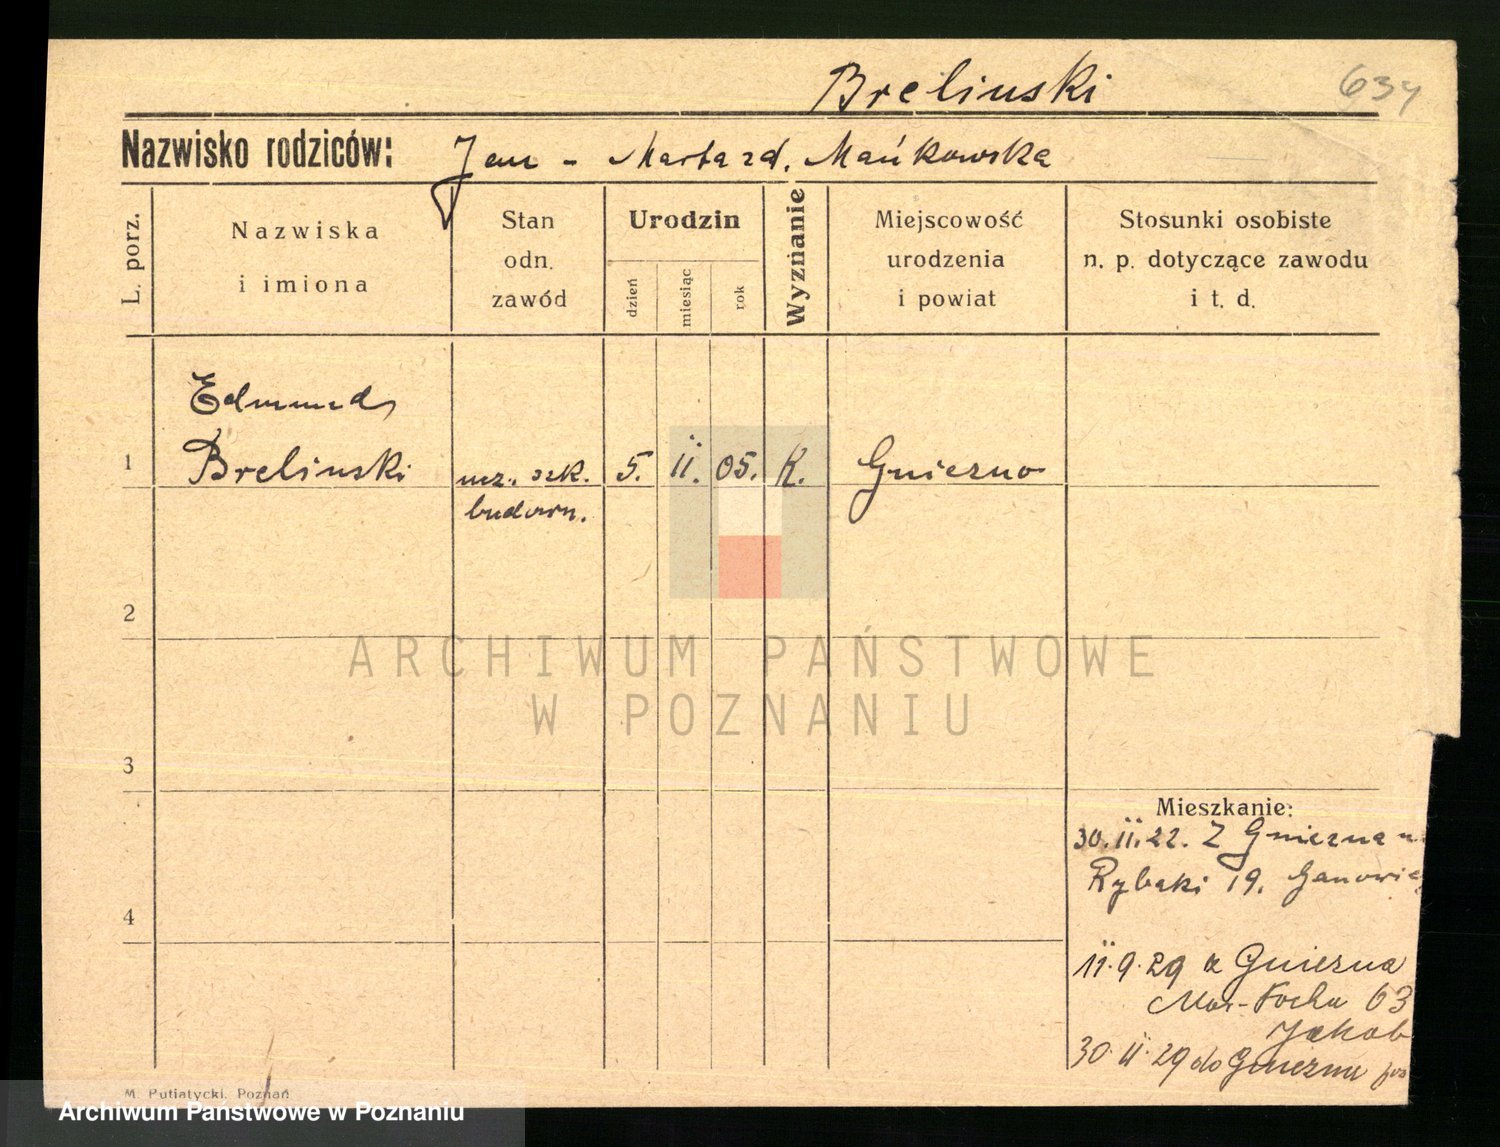 Brelinski 634
Nazwisko rodziców: Jan - Marta zd. Mańkowska
L. porz.
Nazwiska
i imiona
Stan
odn.
zawód
Urodzin
dzień
miesiąc
rok
Wyznanie
Miejscowość
urodzenia
i powiat
Stosunki osobiste
n. p. dotyczące zawodu
i t. d.
Edmund
1 Brelinski ucz. szk. 5. II. 05. K. Gniezno
budown.
2
3
4
ARCHIWUM PAŃSTWOWE
W POZNANIU
Mieszkanie:
30. II. 22. Z Gniezna
Rybaki 19.
11.9.29 z Gniezna
Mar-Focha 63
Jakob
30 II 29 do Gniezna
M. Putiatycki, Poznań
Archiwum Państwowe w Poznaniu